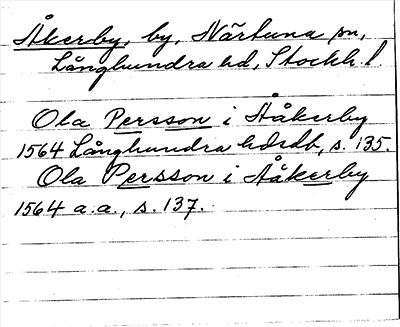 Åkerby, by, Närtuna sn,
Långhundra hd, Stockh. l.
Ola Persson i Håkerby
1564 Långhundra hdsdb, s. 135.
Ola Persson i Aåkerby
1564 a.a., s. 137.